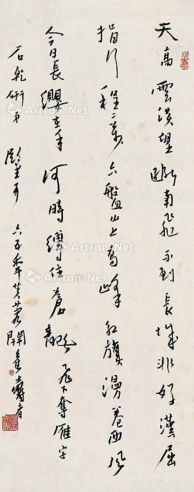 天高雲淡望斷南飛不到長城非好漢屈
指行程二萬六盤山上高峰紅旗漫卷西風
今日長纓在手何時縛住蒼龍飛下奪雁字
石乾研弟 六五年